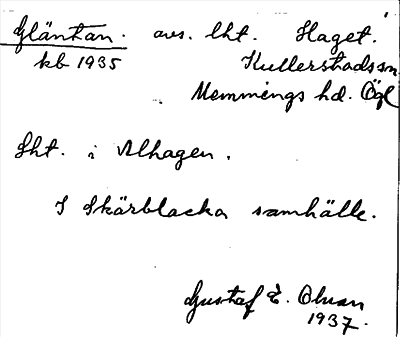 Gläntan. avs. lht. Haget.
kb 1935 Kullerstads sn
Memmings hd. Ögl
Lht. i Alhagen.
I Skärblacka samhälle.
Gustaf E. Olsson
1937.